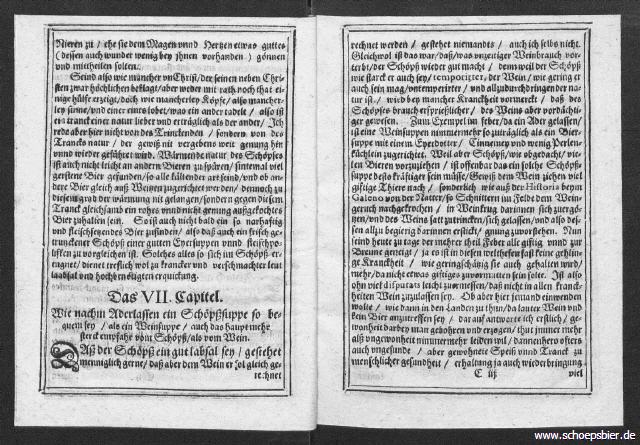 Nieren zu / ehe sie dem Magen vnnd Hertzen etwas guttes
(dessen auch wunder wenig bey jhnen vorhanden) gönnen
vnd mittheilen solten.
Seind also wie mancher vnChrist / der seinen neben Christen
sten zwar höchlichen beklagt / aber weder mit rath noch that einige
hülffe erzeigt / doch wie mancherley Köpfe / also mancherley
sinne / vnd einer eines lobet / was ein ander tadelt / also ist
ein tranck einer natur lieber vnd erträglich als der ander / Ich
rede aber hier nicht von des Trinckenden / sondern von des
Trancks natur / der gewiß nit vergebens weit genung hin
vnnd wieder geführet wird. Wärmende natur des Schöpses
ist auch nicht leicht an andern Bieren zu spüren / sintemal viel
gerstene Bier gefunden / so alle kältender art seind / vnd ob andere
Bier gleich auß Weitzen zugerichtet werden / dennoch zu
diesem grad der wärmung nit gelangen / sondern gegen diesem
Tranck gleichsamb ein rohes vnnd nicht genung außgekochtes
Bier zuhalten sein. So ist auch nicht bald ein so narhafftig
vnd fleischsetzendes Bier zufinden / also daß auch ein frisch getrunckener
Schöps einer gutten Eyersuppen vnnd fleischpotluffen
zu vorgleichen ist. Solches alles so sich im Schöps ereugnet /
dienet treflich wol zu krancker vnd verschmachter leut
labsal vnd hochbenötigten erquickung.
Das VII. Capitel.
Wie nach im Aderlassen ein Schöpßsuppe so bequem
sey / als ein Weinsuppe / auch das haupt mehr
sterck empfahe vom Schöpß / als vom Wein.
Daß der Schöpß ein gut labsal sey / gestehet
menniglich gerne / daß aber dem Wein er sol gleich gerechnet
rechnet werden / gestehet niemandts / auch ich selbs nicht.
Gleichwol ist das war / daß / was vnzeitiger Weinbrauch vorterbt /
der Schöpß wieder gut macht / denn weil der Schöpß
wie starck er auch sey / temporirter, der Wein / wie gering er
auch sein mag / vntemperirter / vnd allzu durchdringender natur
ist / wird bey mancher Kranckheit vormerckt / daß des
Schöpses brauch ersprießlicher / des Weins aber vordächtiger
gewesen. Zum Exempel im feber / da ein Ader gelassen /
ist eine Weinsuppen nimmermehr so zuträglich als ein Biersuppe
mit einem Eyerdotter / Cinnemey vnd wenig Perlenküchlein
zugerichtet. Weil aber Schöpß / wie obgedacht / vielen
Bieren vorzuziehen / ist offenbar das ein solche Schöpßsuppe
desto kräfftiger sein müsse / Gewiß dem Wein ziehen viel
gifftige Thiere nach / sonderlich wie auß der Historia beym
Galeno von der Natter / so Schnittern im Felde dem Weingeruch
nachgekrochen / in Weinkrug darinnen sich zu ergötzen /
vnd des Weins satt zutrincken / sich gelassen / vnd also dessen
allzu begierig darinnen erstickt / gnung zuvorstehen. Nun
seind heute zu tage der mehrer theil Feber alle gifftig vnnd zur
Breune geneigt / ja es ist in diesen welthesen fast keine gelinge
Kranckheit / wie geringschätzig sie auch gehalten wird /
mehr / da nicht etwas gifftiges zuvormuten sein solte. Ist also
ohn viel disputats leicht zuormessen / daß nicht in allen kranckheiten
Wein zuzulassen sey. Ob aber hier jemand einwenden
wolte / wie dann in den Landen zu thun / da lauter Wein vnd
kein Bier anzutreffen sey / darauf antworte ich erstlich / gewonheit
darbey man gebohren vnd erzogen / thut jmmer mehr
alß vngewonheit nimmermehr leiden wil / dannenhero offters
auch vngesunde / aber gewohnete Speiß vnnd Tranck zu
menschlicher gesundheit / erhaltung ja auch wiederbringung
C iij viel
www.schoepsbier.de